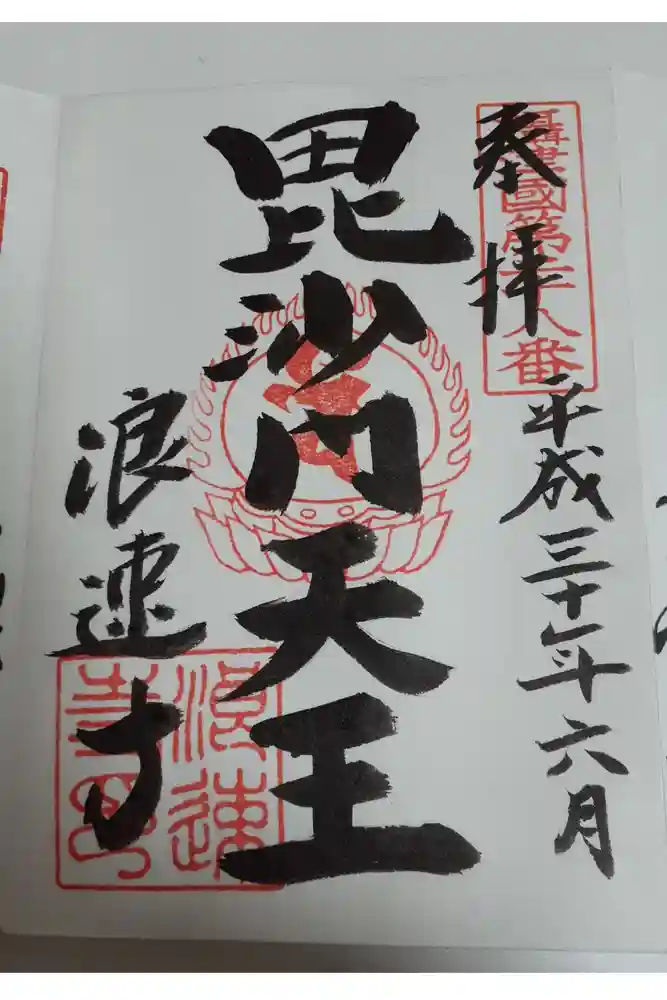 奉拝
攝津國第二十八番
平成三十年六月
毘沙門天王
浪速寺
浪速
寺印